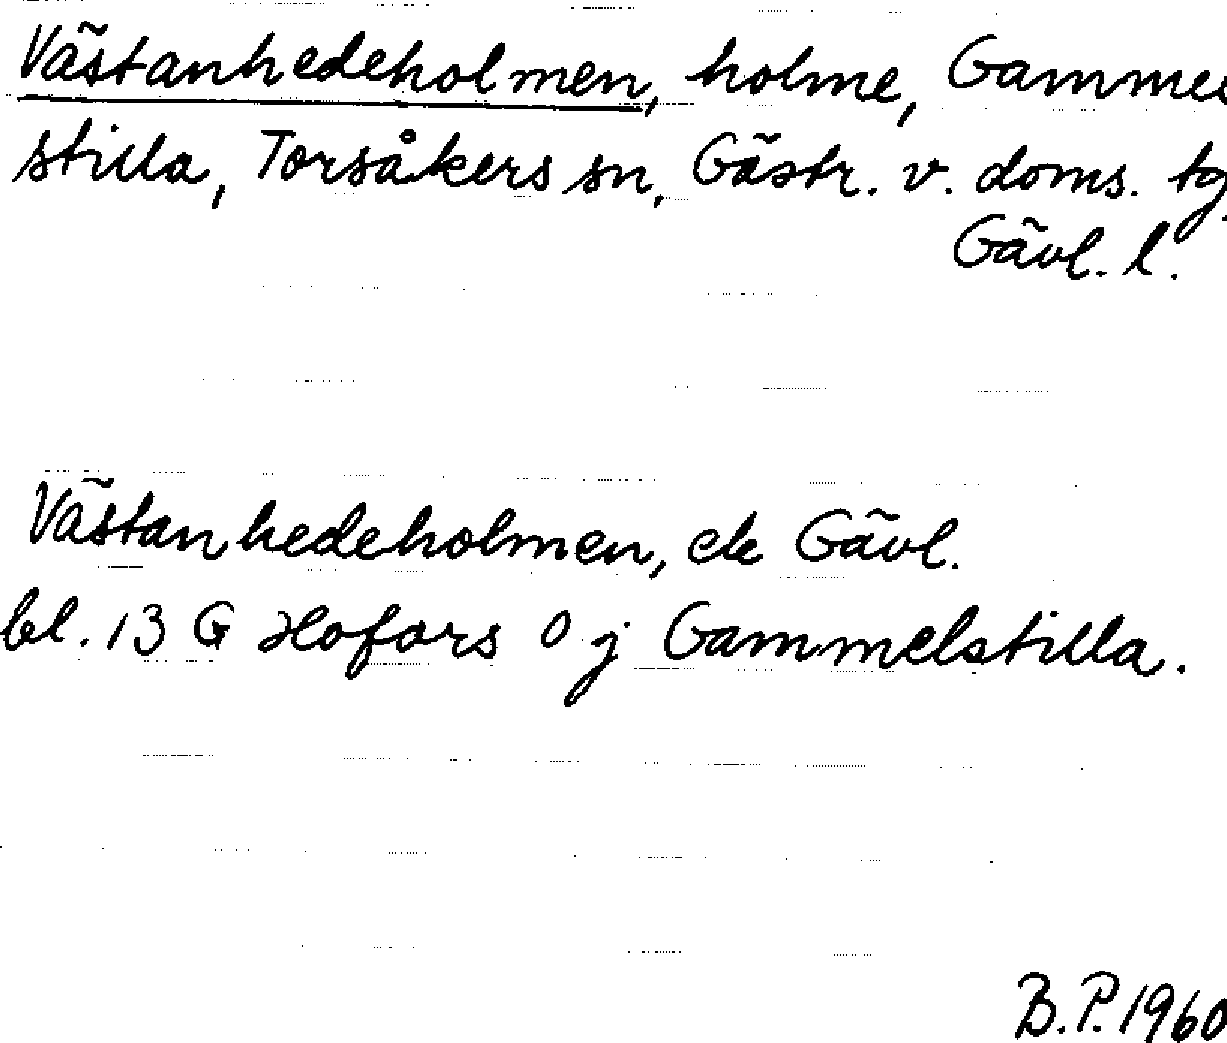 Västanhedeholmen, holme, Gammel
stilla, Torsåkers sn, Gästr. v. doms. tg,
Gävl. l.
Västanhedeholmen, ek Gävl.
bl. 13 G Hofors 0 j Gammelstilla.
B.P. 1960